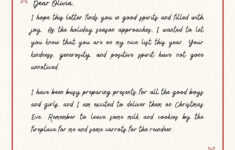 Dear Olivia,
I hope this letter finds you in good spirits and filled with
joy. As the holiday season approaches, I wanted to let
you know that you are on my nice list this year. Your
kindness, generosity, and positive spirit have not gone
unnoticed.
I have been busy preparing presents for all the good boys
and girls, and I am excited to deliver them on Christmas
Eve. Remember to leave some milk and cookies by the
fireplace for me and some carrots for the reindeer.